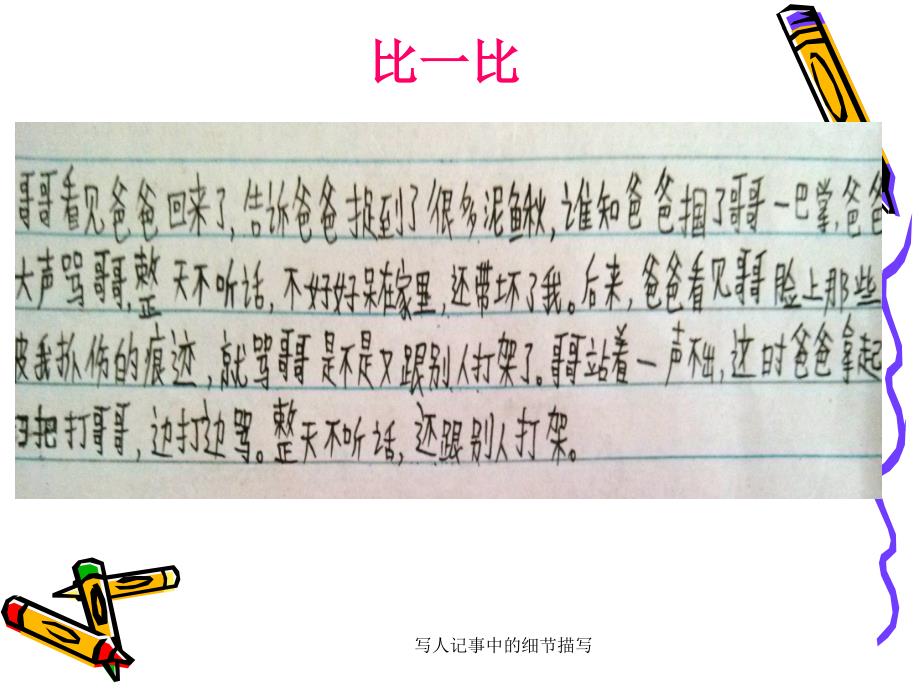 比一比
哥哥看见爸爸回来了,告诉爸爸捉到了很多泥鱼鳅,谁知爸爸掴了哥哥一巴掌,爸爸
大声骂哥哥,整天不听话,不好好呆在家里,还带坏了我。后来,爸爸看见哥哥脸上那些
被我抓伤的痕迹,就骂哥哥是不是又跟别人打架了。哥哥站着一声不出,这时爸爸拿起
把打哥哥,边打边骂。整天不听话,还跟别人打架。
写人记事中的细节描写